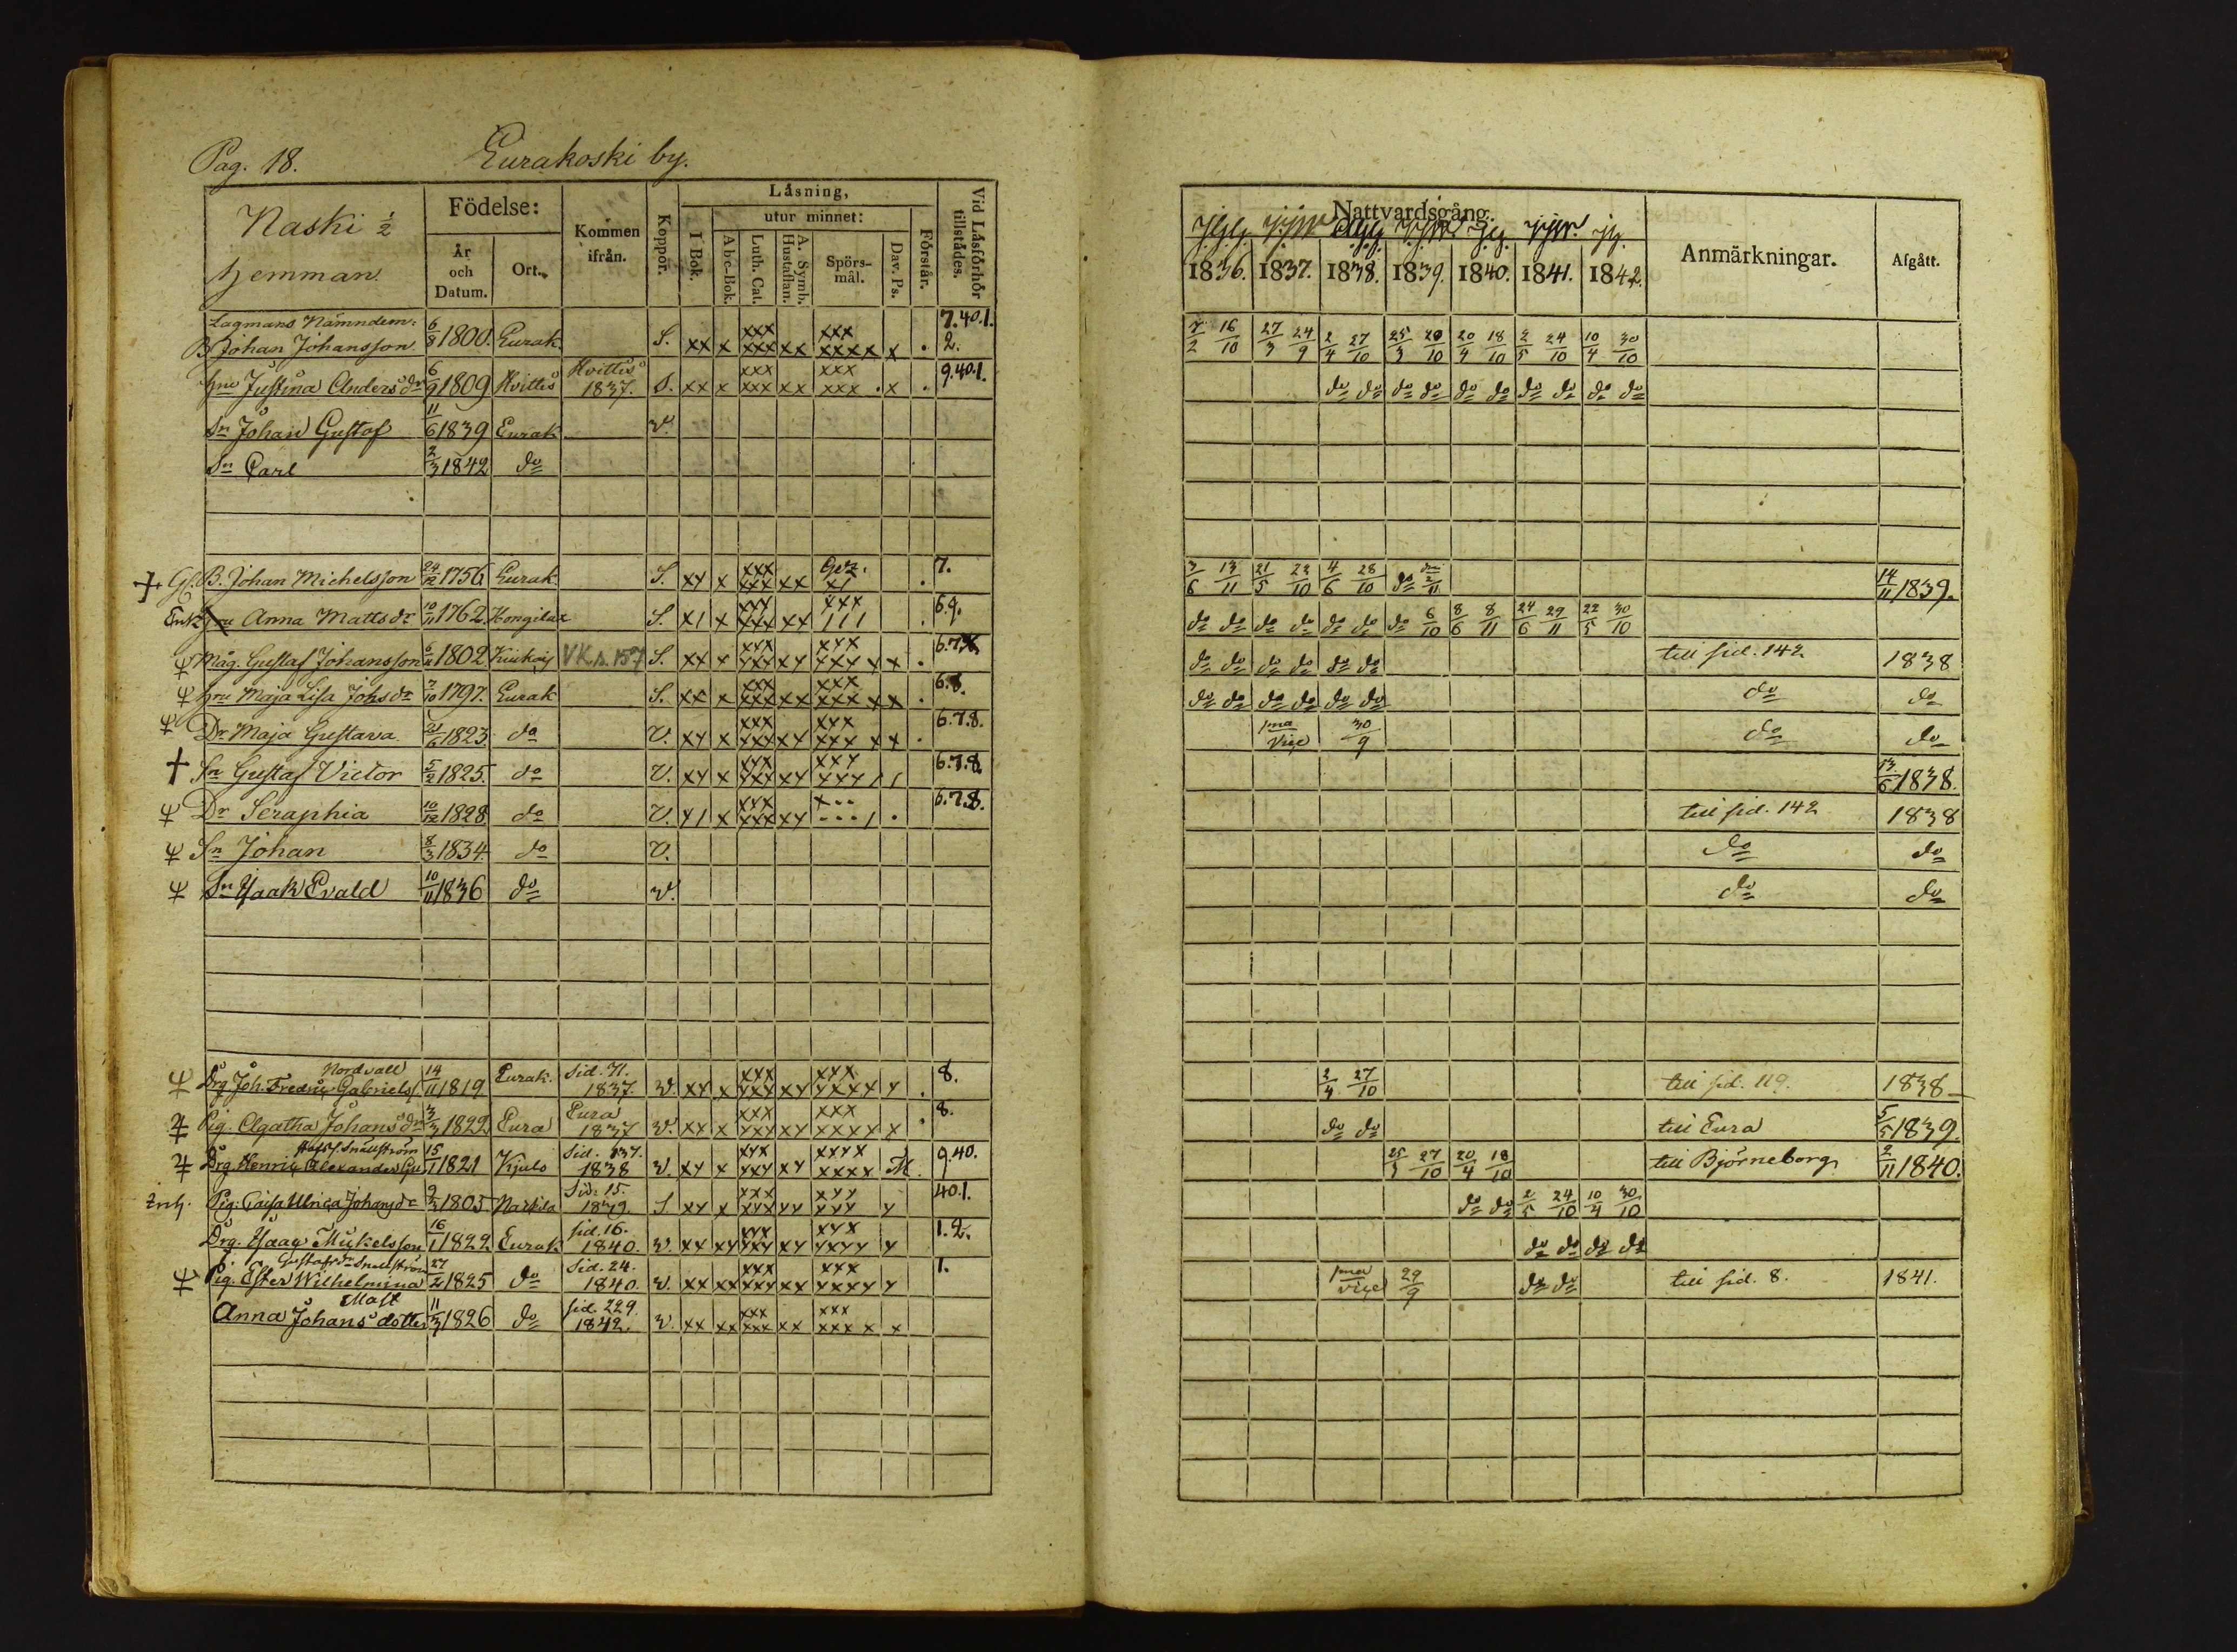 Pag. 18. Eurakoski by.
Naski 1/2 hemman
Födelse:
År och Datum.
Ort.
Kommen ifrån.
Koppor.
Läsning,
I Bok.
utur minnet:
Abc-Bok.
Luth. Cat.
A. Symb. Hustaflan.
Spörsmål.
Dav. Ps.
Förstår.
Vid Läsförhör tillstädes.
Nattvardsgång.
1836. 1837. 1838. 1839. 1840. 1841. 1842.
Anmärkningar.
Afgått.
Lagmans Nämndem: 7.40.1.
B Johan Johansson 6/8 1800. Eurak S. xx x xxx xxx xx xxx xxxx x . 2. 7/2 16/10 27/3 24/9 2/4 27/10 25/3 20/10 20/4 18/10 2/5 24/10 10/4 30/10
Hru Justina Andersdr 6/9 1809 Hvittis Hvittis 1837. S. xx x xxx xxx xx xxx xxx . x . 9.40.1. do do do do do do do do do do
Sn Johan Gustaf 11/6 1839 Eurak v.
Sn Carl 2/3 1842 do
Gl. B. Johan Michelsson 24/12 1756 Eurak S. xx x xxx xxx xx x1 . 7. 3/6 13/11 21/5 22/10 4/6 28/10 do 2/11 14/11 1839.
Enk. Hru Anna Mattsdr 10/11 1762 Hongilax S. x1 x xxx xxx xx xxx 111 . 6.9. do do do do do do do 6/10 8/6 8/11 24/6 29/11 22/5 30/10
Måg. Gustaf Johansson 6/11 1802 Kiukais VK s. 157 S. xx x xxx xxx xx xxx xxx x x . 6.7.8. do do do do do do till sid. 142 1838
Hru Maja Lisa Johsdr 7/10 1797. Eurak S. xx x xxx xxx xx xxx xxx x x . 6.8. do do do do do do do do
Dr Maja Gustava 21/6 1823 do V. xx x xxx xxx xx xxx xxx x x . 6.7.8. 1ma vice 30/9 do do
Sn Gustaf Victor 5/2 1825. do V. xx x xxx xxx xx xxx xxx 1 1 6.7.8. 13/6 1838.
Dr Seraphia 10/12 1828 do V. x1 x xxx xxx xx x.. ...1 . 6.7.8. till sid. 142 1838
Sn Johan 8/3 1834. do V. do do
Sn Isaak Evald 10/11 1836 do v. do do
Nordvall
Drg Joh. Fredric Gabrielss. 14/11 1819 Eurak. Sid. 71. 1837. v. xx x xxx xxx xx xxx xxxx x . 8. 2/4 27/10 till sid. 119. 1838
Pig. Agatha Johansdr 3/3 1822 Eura Eura 1837 v. xx x xxx xxx xx xxx xxxx x . 8. do do till Eura 5/5 1839.
Snällström
Drg Henric Alexander 15/1 1821 Kjulo Sid. 137. 1838 v. xx x xxx xxx xx xxxx xxxx M. 9.40. 25/3 27/10 20/4 18/10 till Björneborg 2/11 1840.
Inh. Pig. Caisa Ulrica Johansdr 9/3 1805 Narkila Sid. 15. 1839. S xx x xxx xxx xx xxx xxx x 40.1. do do 2/5 24/10 10/4 30/10
Drg. Isaac Mickelsson 16/1 1822 Eurak sid. 16. 1840. v. xx xx xxx xxx xx xxx xxxx x 1.2. do do do do
Gustafsdr Snällström
Pig. Ester Wilhelmina 27/2 1825 do Sid. 24. 1840. v. xx xx xxx xxx xx xxx xxxx x 1. 1ma vice 29/9 do do till sid. 8. 1841.
Mast
Anna Johansdotter 11/3 1826 do sid. 229. 1842. v. xx xx xxx xxx xx xxx xxx x x